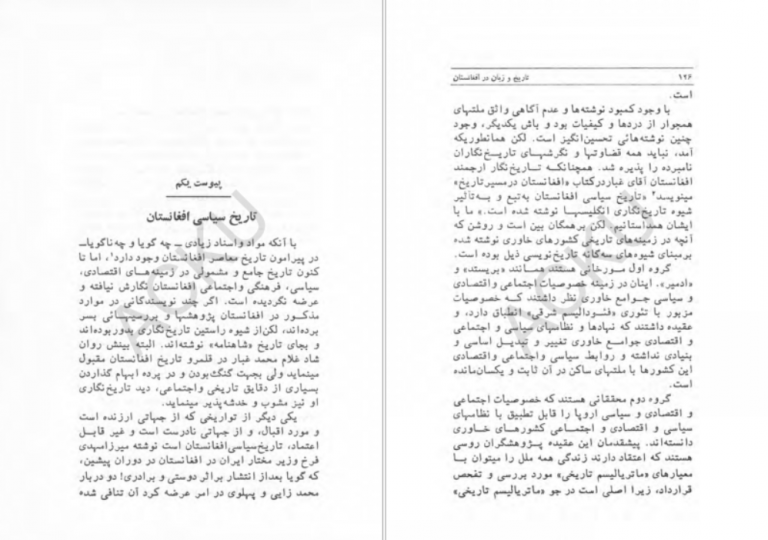 ۱۲۶
تاریخ و زبان در افغانستان
است.
با وجود کمبود نوشته‌ها و عدم آگاهی واثق ملتهای
همجوار از دردها و کیفیات بود و باش یکدیگر، وجود
چنین نوشته‌هائی تحسین‌انگیز است. لکن همانطوریکه
آمد، نباید همه قضاوتها و نگرشهای تاریخ‌نگاران
نامبرده را پذیره شد. همچنانکه تاریخ‌نگار ارجمند
افغانستان آقای غبار درکتاب «افغانستان درمسیر تاریخ»
مینویسد۲ «تاریخ سیاسی افغانستان به‌تبع و به‌تأثیر
شیوه تاریخ‌نگاری انگلیسها نوشته شده است.» ما با
ایشان همداستانیم. لکن برهمگان بین است و روشن که
آنچه در زمینه‌های تاریخی کشورهای خاوری نوشته شده
برمبنای شیوه‌های سه‌گانه تاریخ‌نویسی ذیل بوده است.
گروه اول مورخانی هستند مانند «بریستد» و
«ادمیر». اینان در زمینه خصوصیات اجتماعی و اقتصادی
و سیاسی جوامع خاوری نظر داشتند که خصوصیات
مزبور با تئوری «فئودالیسم شرقی» انطباق دارد، و
عقیده داشتند که نهادها و نظامهای سیاسی و اجتماعی
و اقتصادی جوامع خاوری تغییر و تبدیل اساسی و
بنیادی نداشته و روابط سیاسی واجتماعی واقتصادی
این کشورها با ملتهای ساکن در آن ثابت و یکسان‌مانده
است.
گروه دوم محققانی هستند که خصوصیات اجتماعی
و اقتصادی و سیاسی اروپا را قابل تطبیق با نظامهای
سیاسی و اقتصادی و اجتماعی کشورهای خاوری
دانسته‌اند. پیشقدمان این عقیده پژوهشگران روسی
هستند که اعتقاد دارند زندگی همه ملل را میتوان با
معیارهای «ماتریالیسم تاریخی» مورد بررسی و تفحص
قرارداد، زیرا اصلی است در جو «ماتریالیسم تاریخی»
پیوست یکم
تاریخ سیاسی افغانستان
با آنکه مواد واسناد زیادی ــ چه گویا و چه ناگویا ــ
در پیرامون تاریخ معاصر افغانستان وجود دارد۱، اما تا
کنون تاریخ جامع و مشمولی در زمینه‌های اقتصادی،
سیاسی، فرهنگی واجتماعی افغانستان نگارش نیافته و
عرضه نگردیده است. اگر چند نویسندگانی در موارد
مذکور در افغانستان پژوهشها و بررسیهائی بسر
برده‌اند، لکن‌از شیوه راستین تاریخ‌نگاری بدور بوده‌اند
و بجای تاریخ «شاهنامه» نوشته‌اند. البته بینش روان
شاد غلام محمد غبار در قلمرو تاریخ افغانستان مقبول
مینماید ولی بجهت گنگ‌بودن و در پرده ابهام گذاردن
بسیاری از دقایق تاریخی واجتماعی، دید تاریخ‌نگاری
او نیز مشوب و خدشه‌پذیر مینماید.
یکی دیگر از تواریخی که از جهاتی ارزنده است
و مورد اقبال، و از جهاتی نادرست است و غیر قابل
اعتماد، تاریخ‌سیاسی‌افغانستان است نوشته میرزامهدی
فرخ وزیر مختار ایران در افغانستان در دوران پیشین،
که گویا بعداز انتشار براثر دوستی و برادری! دو دربار
محمد زایی و پهلوی در امر عرضه کرد آن تنافی شده
ACKU
ACKU